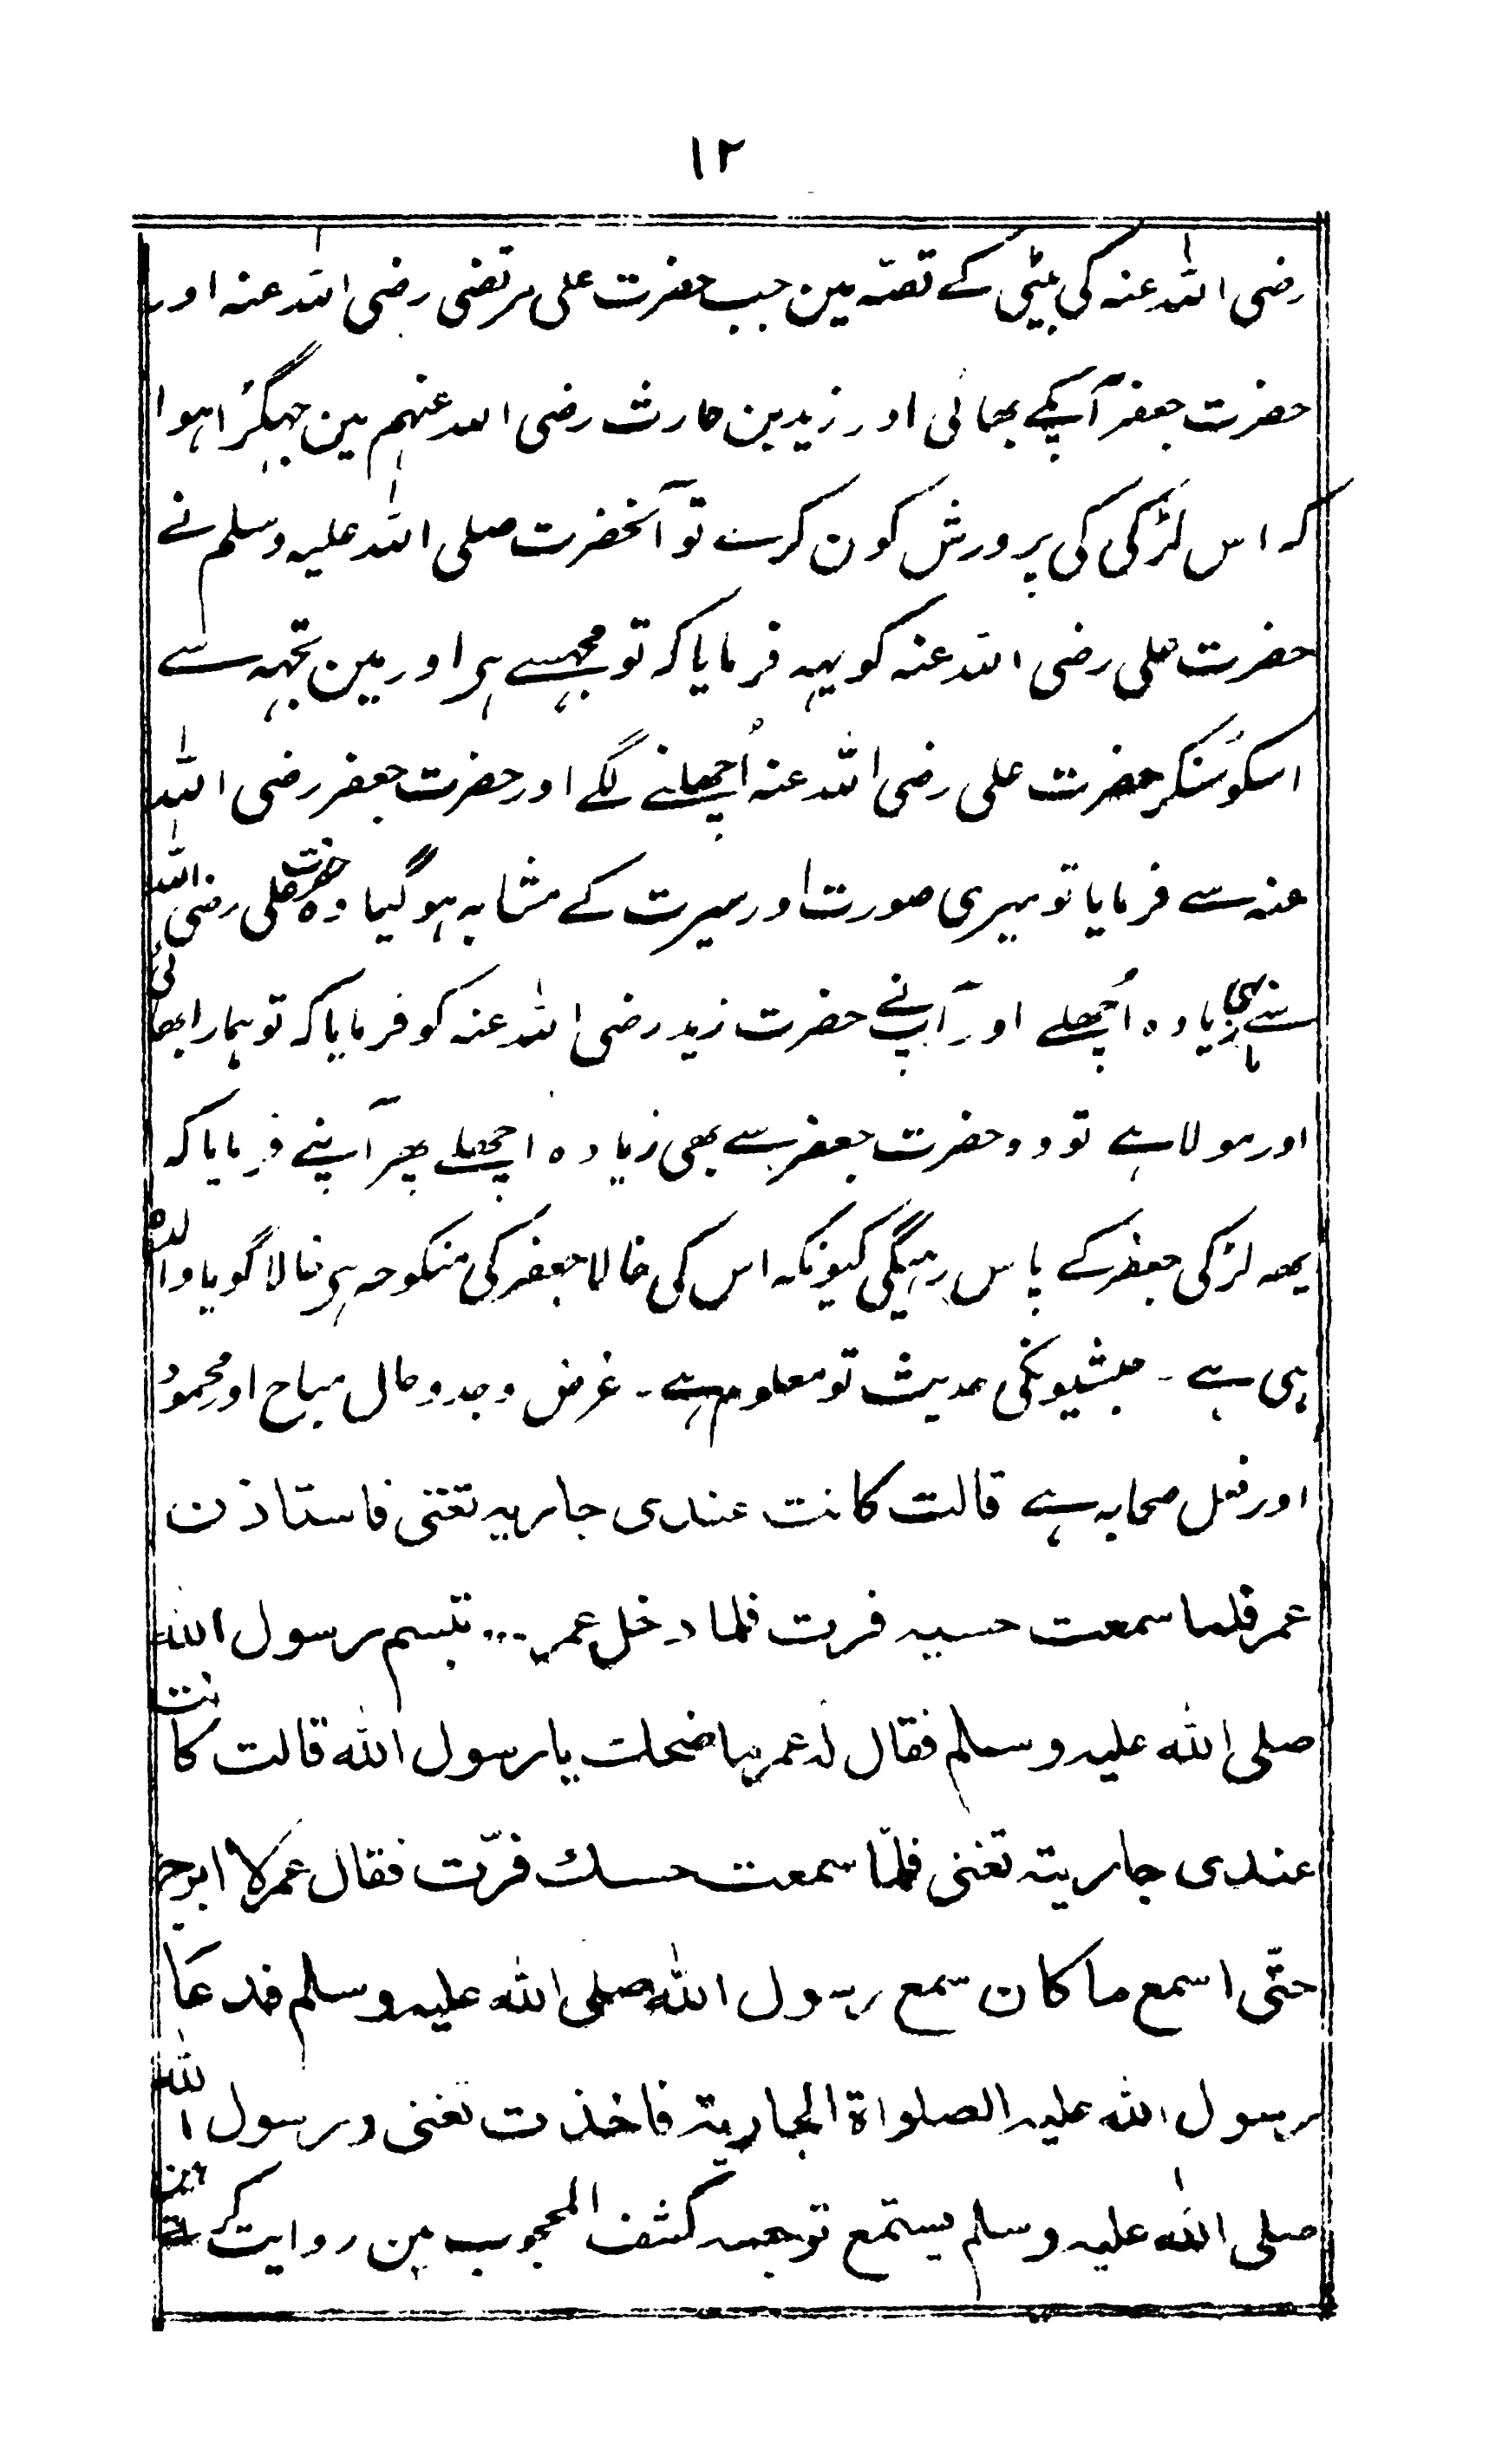 ۱۲
رضی اللہ عنہ کی بیٹی کے قصّہ مین جب حضرت علی مرتضی رضی اللہ عنہ اور
حضرت جعفر آپکے بھائی اور زید بن حارث رضی اللہ عنہم مین جہگڑا ہوا
کہ اس لڑکی کی پرورش کون کرے تو آنحضرت صلی اللہ علیہ وسلم نے
حضرت علی رضی اللہ عنہ کو یہہ فرمایا کہ تو مجہسے ہی اور مین تجہہ سے
اسکو سُنکر حضرت علی رضی اللہ عنہ اُچھلنے لگے اور حضرت جعفر رضی اللہ
عنہ سے فرمایا تو میری صورت اور سیرت کے مشابہ ہوگیا وہ حضرت علی رضی اللہ
سے بھی زیادہ اُچھلے اور آپنے حضرت زید رضی اللہ عنہ کو فرمایا کہ تو ہمارا بھائی
اور مولا ہے تو وہ حضرت جعفر سے بھی زیادہ اچھلے پھر آپنے فرمایا کہ
یہہ لڑکی جعفر کے پاس رہیگی کیونکہ اس کی خالا جعفر کی منکوحہ ہی خالا گویا والدہ
ہی ہے ۔ حبشیونکی حدیث تو معلوم ہے ۔ غرض وجد و حال مباح اور محمود
اور فعل صحابہ ہے قالت کانت عندی جاریہ تغنی فاستاذن
عمر فلما سمعت حسیہ فرت فلما دخل عمر ... تبسم رسول اللہ
صلی اللہ علیہ وسلم فقال لہ عمر ما ضحلت یا رسول اللہ قالت کانت
عندی جاریتہ تغنی فلمّا سمعت حسك فرّت فقال عمر لا ابرح
حتّی اسمع ما کان سمع رسول اللہ صلی اللہ علیہ وسلم فدعا
رسول اللہ علیہ الصلواة الجاریة فاخذت تغنی و رسول اللہ
صلی اللہ علیہ وسلم یستمع ترجمہ کشف المحجوب مین روایت کرتے ہین